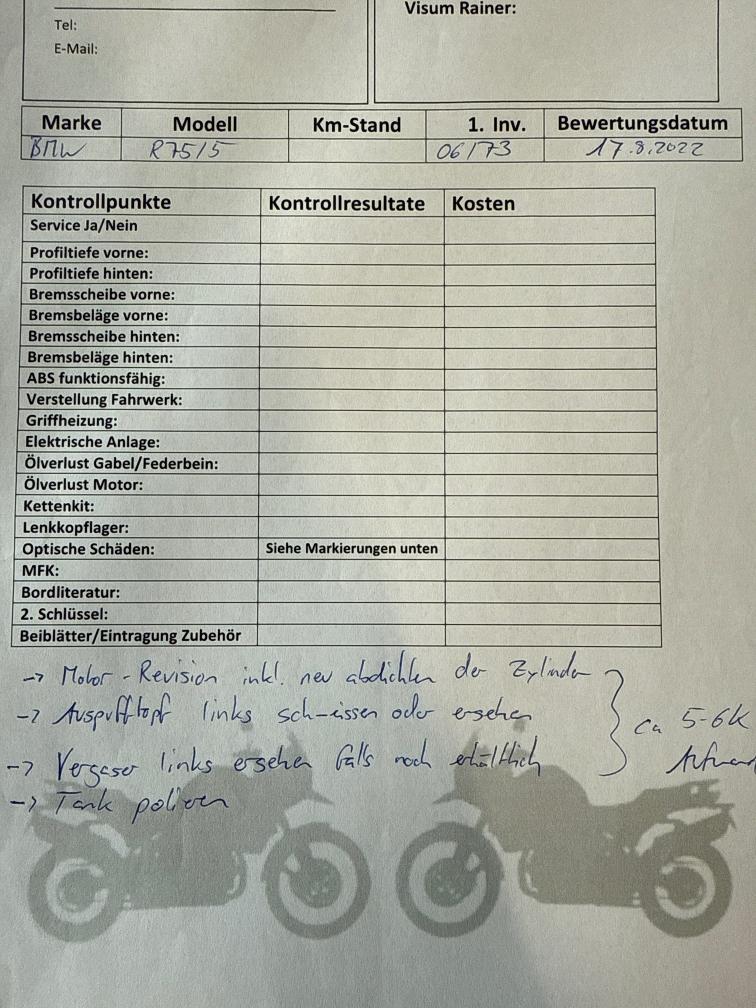 Visum Rainer:
Tel:
E-Mail:
Marke Modell Km-Stand 1. Inv. Bewertungsdatum
BMW R75/5 06/73 17.8.2022
Kontrollpunkte Kontrollresultate Kosten
Service Ja/Nein
Profiltiefe vorne:
Profiltiefe hinten:
Bremsscheibe vorne:
Bremsbeläge vorne:
Bremsscheibe hinten:
Bremsbeläge hinten:
ABS funktionsfähig:
Verstellung Fahrwerk:
Griffheizung:
Elektrische Anlage:
Ölverlust Gabel/Federbein:
Ölverlust Motor:
Kettenkit:
Lenkkopflager:
Optische Schäden: Siehe Markierungen unten
MFK:
Bordliteratur:
2. Schlüssel:
Beiblätter/Eintragung Zubehör
-> Motor-Revision inkl. neu abdichten der Zylinder
-> Auspufftopf links schweissen oder ersetzen
ca 5-6K
-> Vergaser links ersetzen falls noch erhältlich
-> Tank polieren